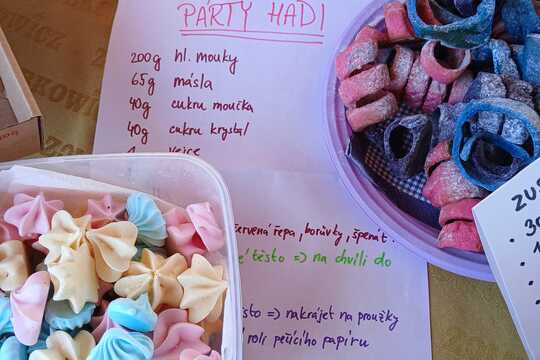 PÁRTY HADI
200g hl. mouky
65g másla
40g cukru moučka
40g cukru krystal
1 vejce
červená řepa, borůvky, špenát.
těsto => na chvíli do
těsto => nakrájet na proužky
roli pečícího papíru